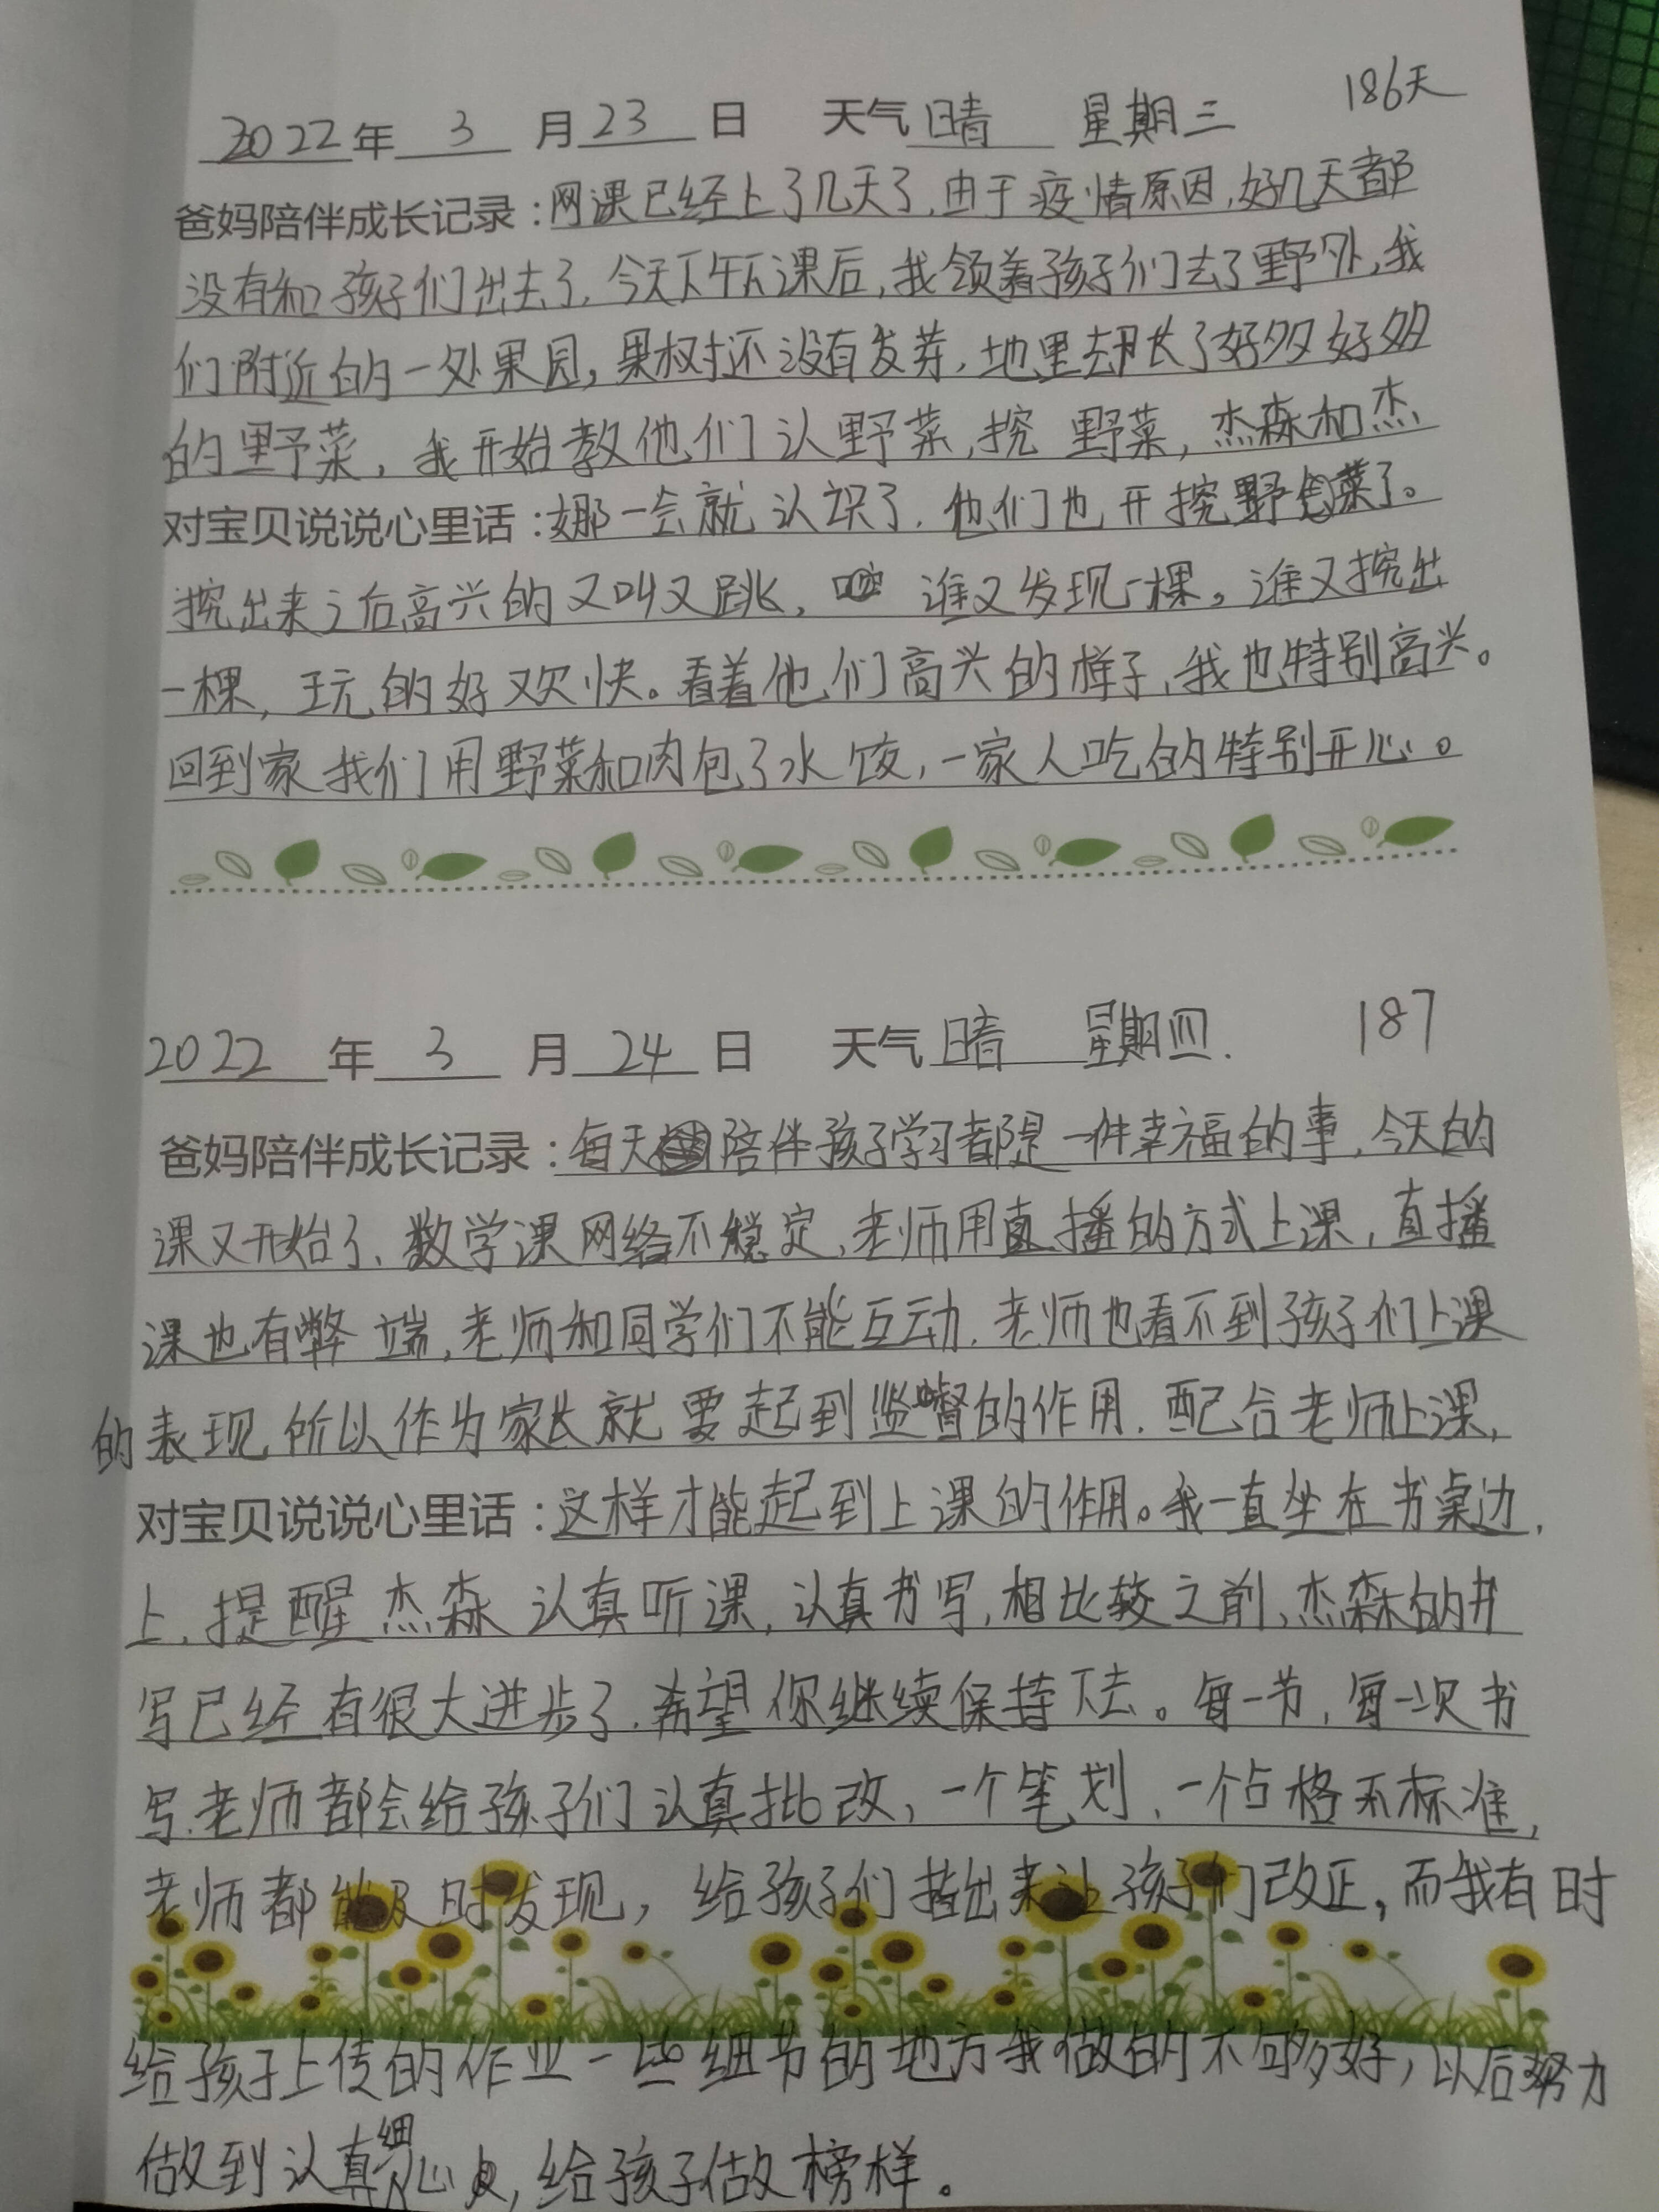 186天
2022年 3 月 23 日 天气 晴 星期三
爸妈陪伴成长记录:网课已经上了几天了,由于疫情原因,好几天都
没有和孩子们出去了,今天下午下课后,我领着孩子们去了野外,我
们附近的一处果园,果树还没有发芽,地里却长了好多好多
的野菜,我开始教他们认野菜,挖野菜,杰森和杰
对宝贝说说心里话:娜一会就认识了,他们也开挖野菜了。
挖出来之后高兴的又叫又跳,谁又发现一棵。谁又挖出
一棵,玩的好欢快。看着他们高兴的样子,我也特别高兴。
回到家我们用野菜和肉包了水饺,一家人吃的特别开心。
2022 年 3 月 24 日 天气 晴 星期四. 187
爸妈陪伴成长记录:每天陪伴孩子学习都是一件幸福的事,今天的
课又开始了,数学课网络不稳定,老师用直播的方式上课,直播
课也有弊端,老师和同学们不能互动,老师也看不到孩子们上课
的表现,所以作为家长就要起到监督的作用,配合老师上课,
对宝贝说说心里话:这样才能起到上课的作用。我一直坐在书桌边,
上,提醒杰森认真听课,认真书写,相比较之前,杰森的书
写已经有很大进步了,希望你继续保持下去。每一节,每一次书
写,老师都会给孩子们认真批改,一个笔划,一个占格不标准,
老师都能及时发现,给孩子们指出来让孩子们改正,而我有时
给孩子上传的作业一些细节的地方我做的不够好,以后努力
做到认真细心,给孩子做榜样。